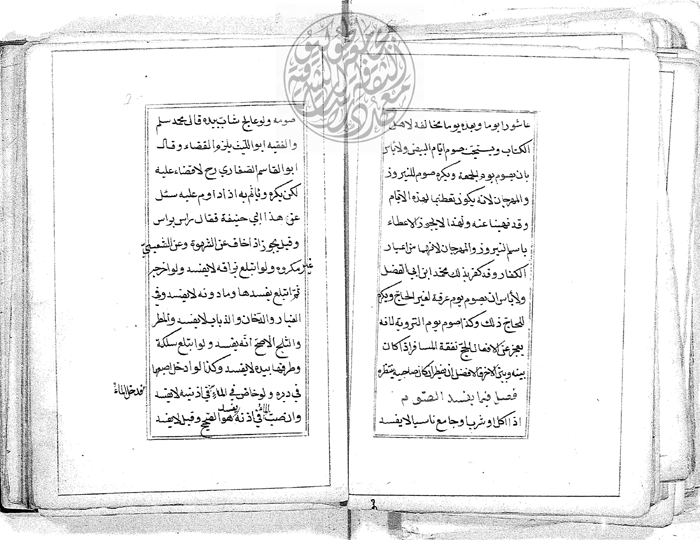 عاشورا يوما وبعده يوما مخالفة لاهل
الكتاب ويستحب صوم ايام البيض ولا باس
بان يصوم يوم الجمعة ويكره صوم النيروز
والمهرجان لانه يكون تعظيما لهذه الايام
وقد نهينا عنه ولهذا لا يجوز الاعطاء
باسم النيروز والمهرجان لانهما من اعياد
الكفار وقد كفر بذلك محمد ابن ابي الفضل
ولا باس ان يصوم يوم عرفة لغير الحاج ويكره
للحاج ذلك وكذا صوم يوم التروية لانه
يعجز عن الافعال للحج نفقة المسافر اذا كان
بينه وبين الاخر فالافضل ان يفطر ان كان صاحبه يفطر
فصل فيما يفسد الصوم
اذا اكل او شرب او جامع ناسيا لا يفسد
صومه ولو عالج شاب بيده قال محمد سلم
والفقيه ابو الليث يلزم القضاء وقال
ابو القاسم الصفاري رح لا قضاء عليه
لكن يكره وياثم به اذا داوم عليه سئل
عن هذا ابي حنيفة فقال راس براس
وقيل يجوز اذ اخاف عن الشهوة وعن الشعبي
غير مكروه ولو ابتلع بزاقه لا يفسد ولو اخرج
ثم ابتلع يفسدها وما دونه لا يفسد وفي
الغبار والدخان والذباب لا يفسد والمطر
والثلج الاصح انه يفسد ولو ابتلع سلكة
وطرفها بيده لا يفسد وكذا لو ادخل اصبعها
في دبره ولو خاض في الماء في اذنيه لا يفسد
فدخل الماء
وان صب الماء في اذنه يفسد هو الصحيح وقيل لا يفسد